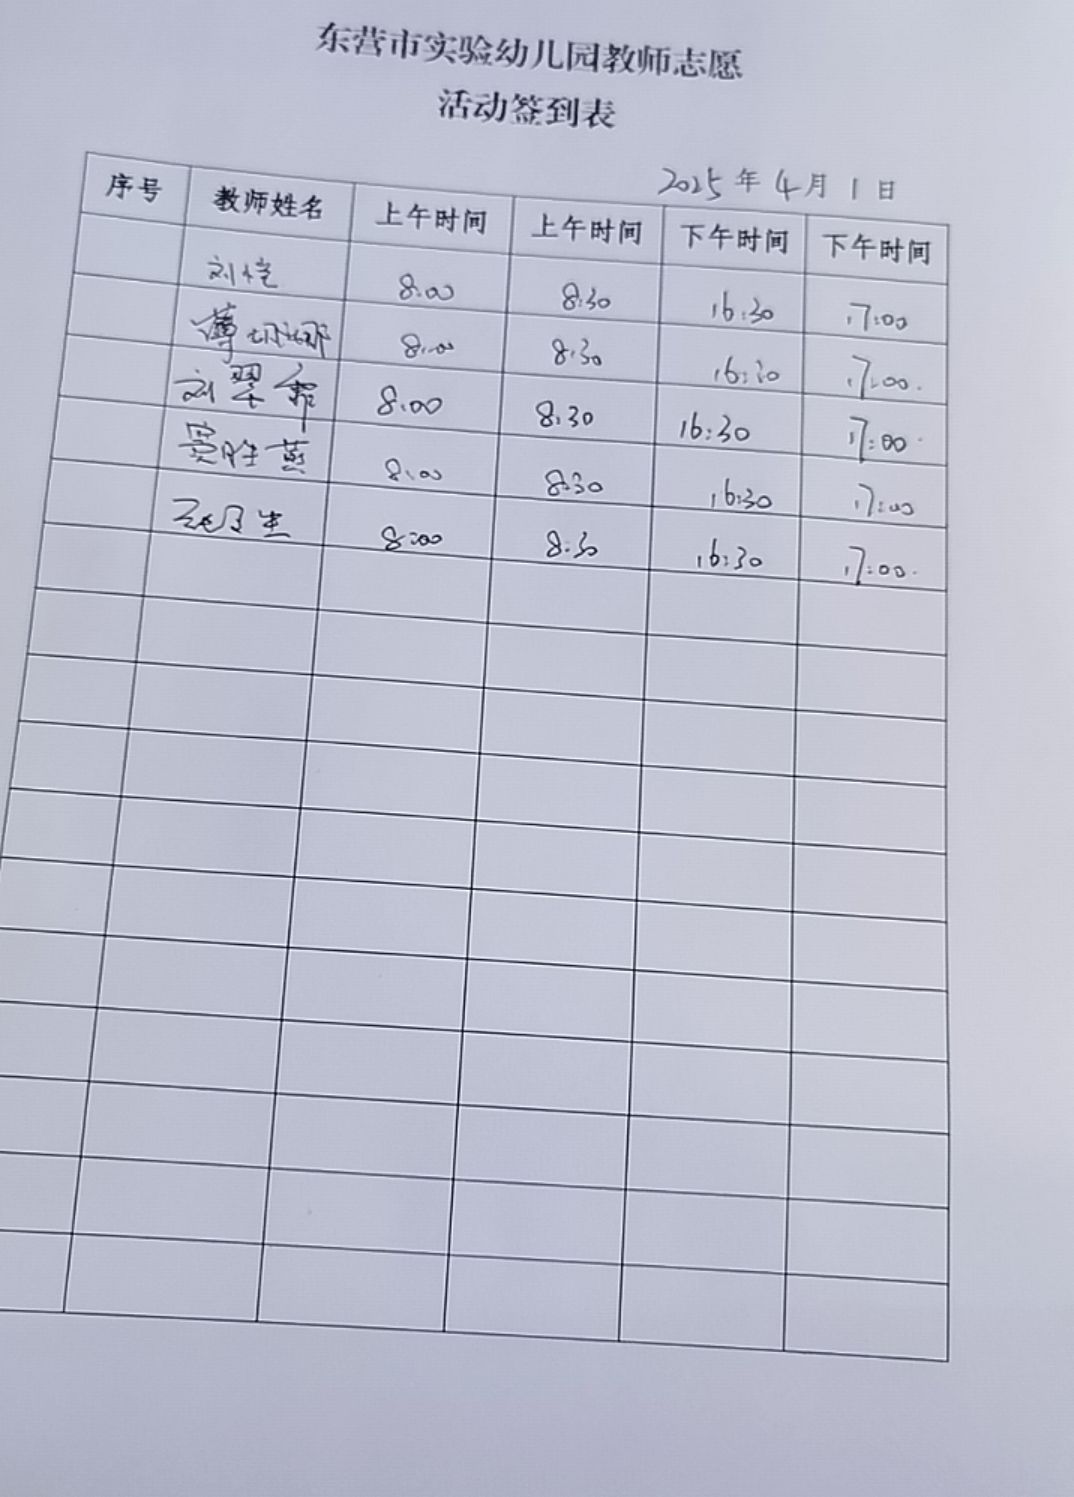 东营市实验幼儿园教师志愿
活动签到表
2025年4月1日
序号 教师姓名 上午时间 上午时间 下午时间 下午时间
刘恺 8:00 8:30 16:30 17:00
薄娜 8:00 8:30 16:30 17:00.
刘翠 8:00 8:30 16:30 17:00.
贾胜燕 8:00 8:30 16:30 17:00
8:00 8:30 16:30 17:00.